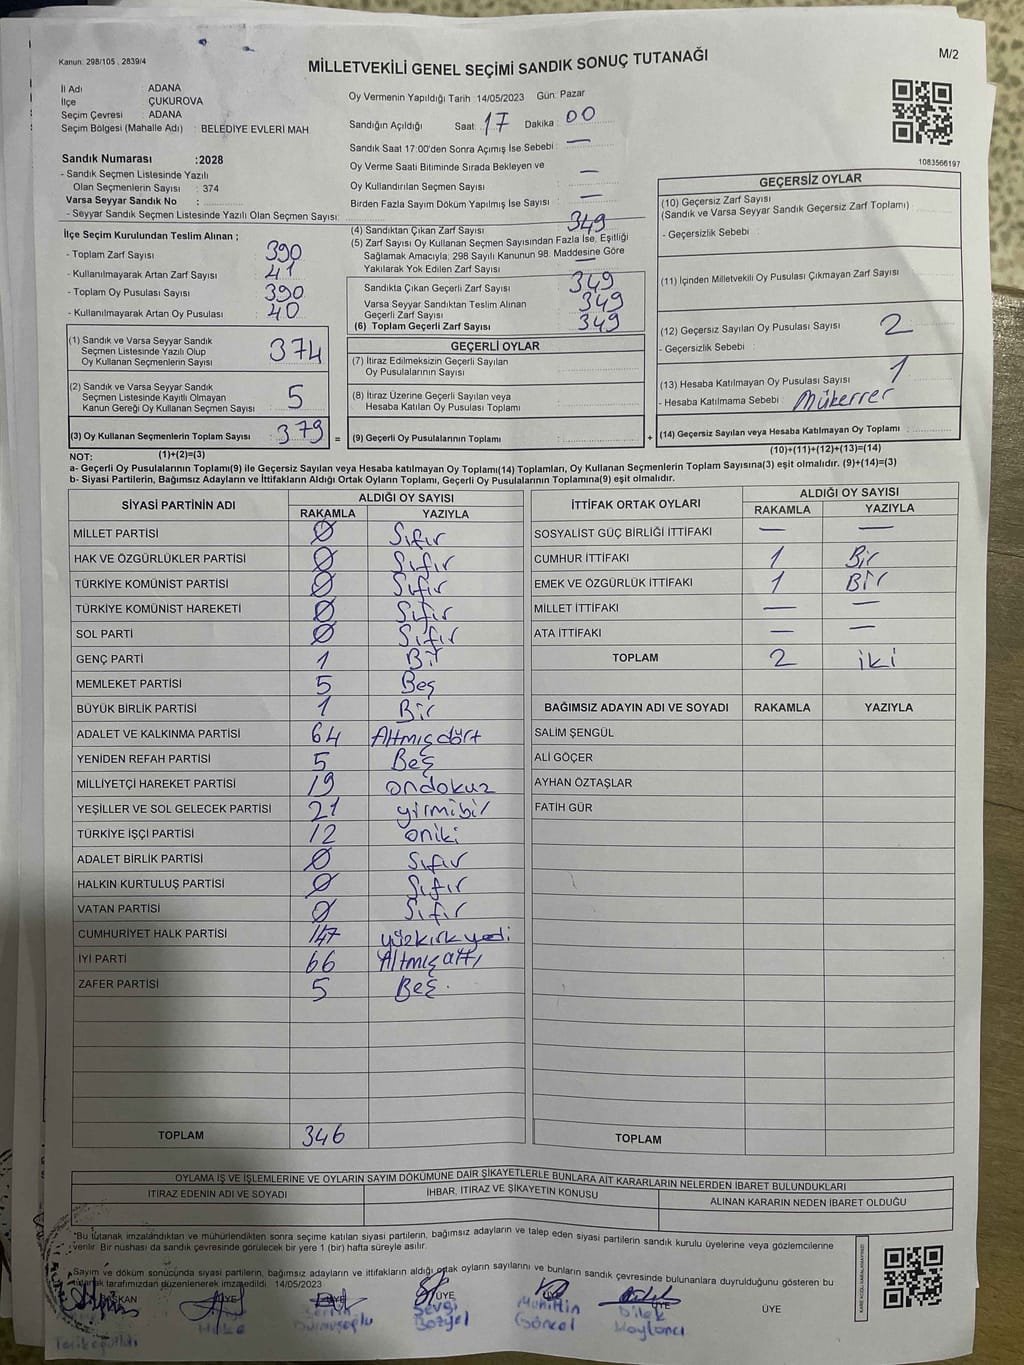 Kanun: 298/105 , 2839/4
MİLLETVEKİLİ GENEL SEÇİMİ SANDIK SONUÇ TUTANAĞI
M/2
İl Adı : ADANA
İlçe : ÇUKUROVA
Seçim Çevresi : ADANA
Seçim Bölgesi (Mahalle Adı) : BELEDİYE EVLERİ MAH
Sandık Numarası :2028
- Sandık Seçmen Listesinde Yazılı
Olan Seçmenlerin Sayısı : 374
Varsa Seyyar Sandık No :
- Seyyar Sandık Seçmen Listesinde Yazılı Olan Seçmen Sayısı:
Oy Vermenin Yapıldığı Tarih :14/05/2023 Gün: Pazar
Sandığın Açıldığı Saat: 17 Dakika : 00
Sandık Saat 17:00'den Sonra Açımış İse Sebebi : —
Oy Verme Saati Bitiminde Sırada Bekleyen ve
Oy Kullandırılan Seçmen Sayısı : —
Birden Fazla Sayım Döküm Yapılmış İse Sayısı : —
1083566197
İlçe Seçim Kurulundan Teslim Alınan ;
- Toplam Zarf Sayısı : 390
- Kullanılmayarak Artan Zarf Sayısı : 41
- Toplam Oy Pusulası Sayısı : 390
- Kullanılmayarak Artan Oy Pusulası : 40
(1) Sandık ve Varsa Seyyar Sandık
Seçmen Listesinde Yazılı Olup
Oy Kullanan Seçmenlerin Sayısı : 374
(2) Sandık ve Varsa Seyyar Sandık
Seçmen Listesinde Kayıtlı Olmayan
Kanun Gereği Oy Kullanan Seçmen Sayısı : 5
(3) Oy Kullanan Seçmenlerin Toplam Sayısı : 379 =
(4) Sandıktan Çıkan Zarf Sayısı : 349
(5) Zarf Sayısı Oy Kullanan Seçmen Sayısından Fazla İse, Eşitliği
Sağlamak Amacıyla, 298 Sayılı Kanunun 98. Maddesine Göre
Yakılarak Yok Edilen Zarf Sayısı : —
Sandıkta Çıkan Geçerli Zarf Sayısı : 349
Varsa Seyyar Sandıktan Teslim Alınan
Geçerli Zarf Sayısı : 349
(6) Toplam Geçerli Zarf Sayısı : 349
GEÇERLİ OYLAR
(7) İtiraz Edilmeksizin Geçerli Sayılan
Oy Pusulalarının Sayısı :
(8) İtiraz Üzerine Geçerli Sayılan veya
Hesaba Katılan Oy Pusulası Toplamı :
(9) Geçerli Oy Pusulalarının Toplamı : +
GEÇERSİZ OYLAR
(10) Geçersiz Zarf Sayısı
(Sandık ve Varsa Seyyar Sandık Geçersiz Zarf Toplamı) :
- Geçersizlik Sebebi :
(11) İçinden Milletvekili Oy Pusulası Çıkmayan Zarf Sayısı :
(12) Geçersiz Sayılan Oy Pusulası Sayısı : 2
- Geçersizlik Sebebi :
(13) Hesaba Katılmayan Oy Pusulası Sayısı : 1
- Hesaba Katılmama Sebebi : Mükerrer
(14) Geçersiz Sayılan veya Hesaba Katılmayan Oy Toplamı :
NOT: (1)+(2)=(3)
(10)+(11)+(12)+(13)=(14)
a- Geçerli Oy Pusulalarının Toplamı(9) ile Geçersiz Sayılan veya Hesaba katılmayan Oy Toplamı(14) Toplamları, Oy Kullanan Seçmenlerin Toplam Sayısına(3) eşit olmalıdır. (9)+(14)=(3)
b- Siyasi Partilerin, Bağımsız Adayların ve İttifakların Aldığı Ortak Oyların Toplamı, Geçerli Oy Pusulalarının Toplamına(9) eşit olmalıdır.
SİYASİ PARTİNİN ADI ALDIĞI OY SAYISI
RAKAMLA YAZIYLA
MİLLET PARTİSİ Ø Sıfır
HAK VE ÖZGÜRLÜKLER PARTİSİ Ø Sıfır
TÜRKİYE KOMÜNİST PARTİSİ Ø Sıfır
TÜRKİYE KOMÜNİST HAREKETİ Ø Sıfır
SOL PARTİ Ø Sıfır
GENÇ PARTİ 1 Bir
MEMLEKET PARTİSİ 5 Beş
BÜYÜK BİRLİK PARTİSİ 1 Bir
ADALET VE KALKINMA PARTİSİ 64 Altmışdört
YENİDEN REFAH PARTİSİ 5 Beş
MİLLİYETÇİ HAREKET PARTİSİ 19 ondokuz
YEŞİLLER VE SOL GELECEK PARTİSİ 21 yirmibir
TÜRKİYE İŞÇİ PARTİSİ 12 oniki
ADALET BİRLİK PARTİSİ Ø Sıfır
HALKIN KURTULUŞ PARTİSİ Ø Sıfır
VATAN PARTİSİ Ø Sıfır
CUMHURİYET HALK PARTİSİ 147 yüzkırkyedi
İYİ PARTİ 66 Altmışaltı
ZAFER PARTİSİ 5 Beş.
TOPLAM 346
İTTİFAK ORTAK OYLARI ALDIĞI OY SAYISI
RAKAMLA YAZIYLA
SOSYALİST GÜÇ BİRLİĞİ İTTİFAKI — —
CUMHUR İTTİFAKI 1 Bir
EMEK VE ÖZGÜRLÜK İTTİFAKI 1 Bir
MİLLET İTTİFAKI — —
ATA İTTİFAKI — —
TOPLAM 2 iki
BAĞIMSIZ ADAYIN ADI VE SOYADI RAKAMLA YAZIYLA
SALİM ŞENGÜL
ALİ GÖÇER
AYHAN ÖZTAŞLAR
FATİH GÜR
TOPLAM
OYLAMA İŞ VE İŞLEMLERİNE VE OYLARIN SAYIM DÖKÜMÜNE DAİR ŞİKAYETLERLE BUNLARA AİT KARARLARIN NELERDEN İBARET BULUNDUKLARI
İTİRAZ EDENİN ADI VE SOYADI İHBAR, İTİRAZ VE ŞİKAYETİN KONUSU ALINAN KARARIN NEDEN İBARET OLDUĞU
*Bu tutanak imzalandıktan ve mühürlendikten sonra seçime katılan siyasi partilerin, bağımsız adayların ve talep eden siyasi partilerin sandık kurulu üyelerine veya gözlemcilerine
verilir. Bir nüshası da sandık çevresinde görülecek bir yere 1 (bir) hafta süreyle asılır.
Sayım ve döküm sonucunda siyasi partilerin, bağımsız adayların ve ittifakların aldığı ortak oyların sayılarını ve bunların sandık çevresinde bulunanlara duyrulduğunu gösteren bu
tutanak tarafımızdan düzenlenerek imzaedildi. 14/05/2023
BAŞKAN ÜYE ÜYE ÜYE ÜYE ÜYE
Sevgi Muhittin Dilek
Bozyel Göncel